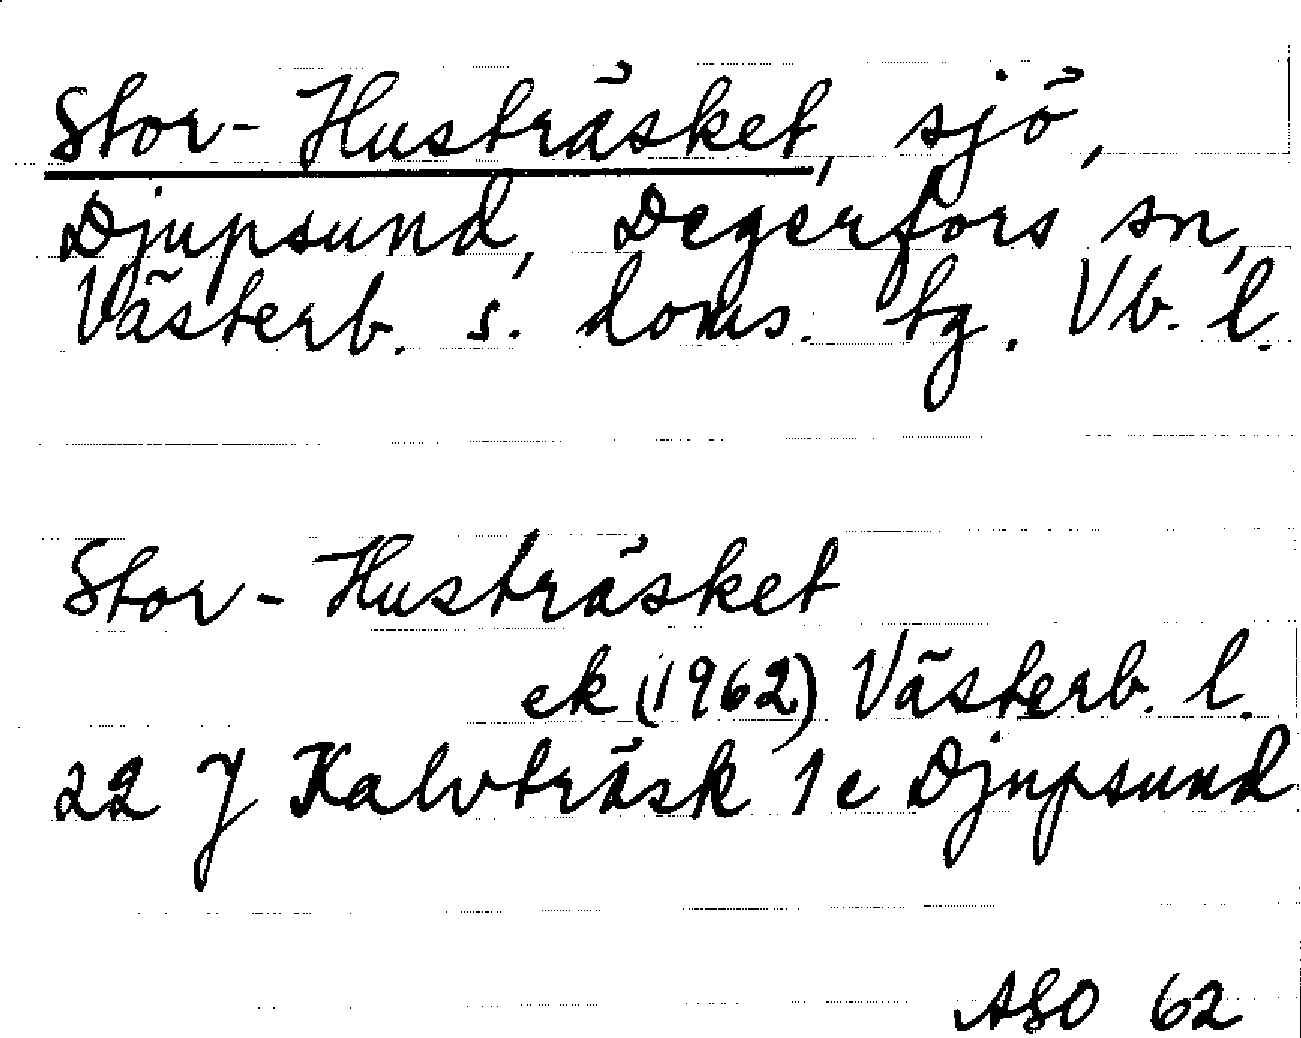 Stor-Husträsket, sjö,
Djupsund, Degerfors sn,
Västerb. s. doms. tg. Vb. l.
Stor-Husträsket
ek (1962) Västerb. l.
22 J Kalvträsk 1c Djupsund
ASO 62